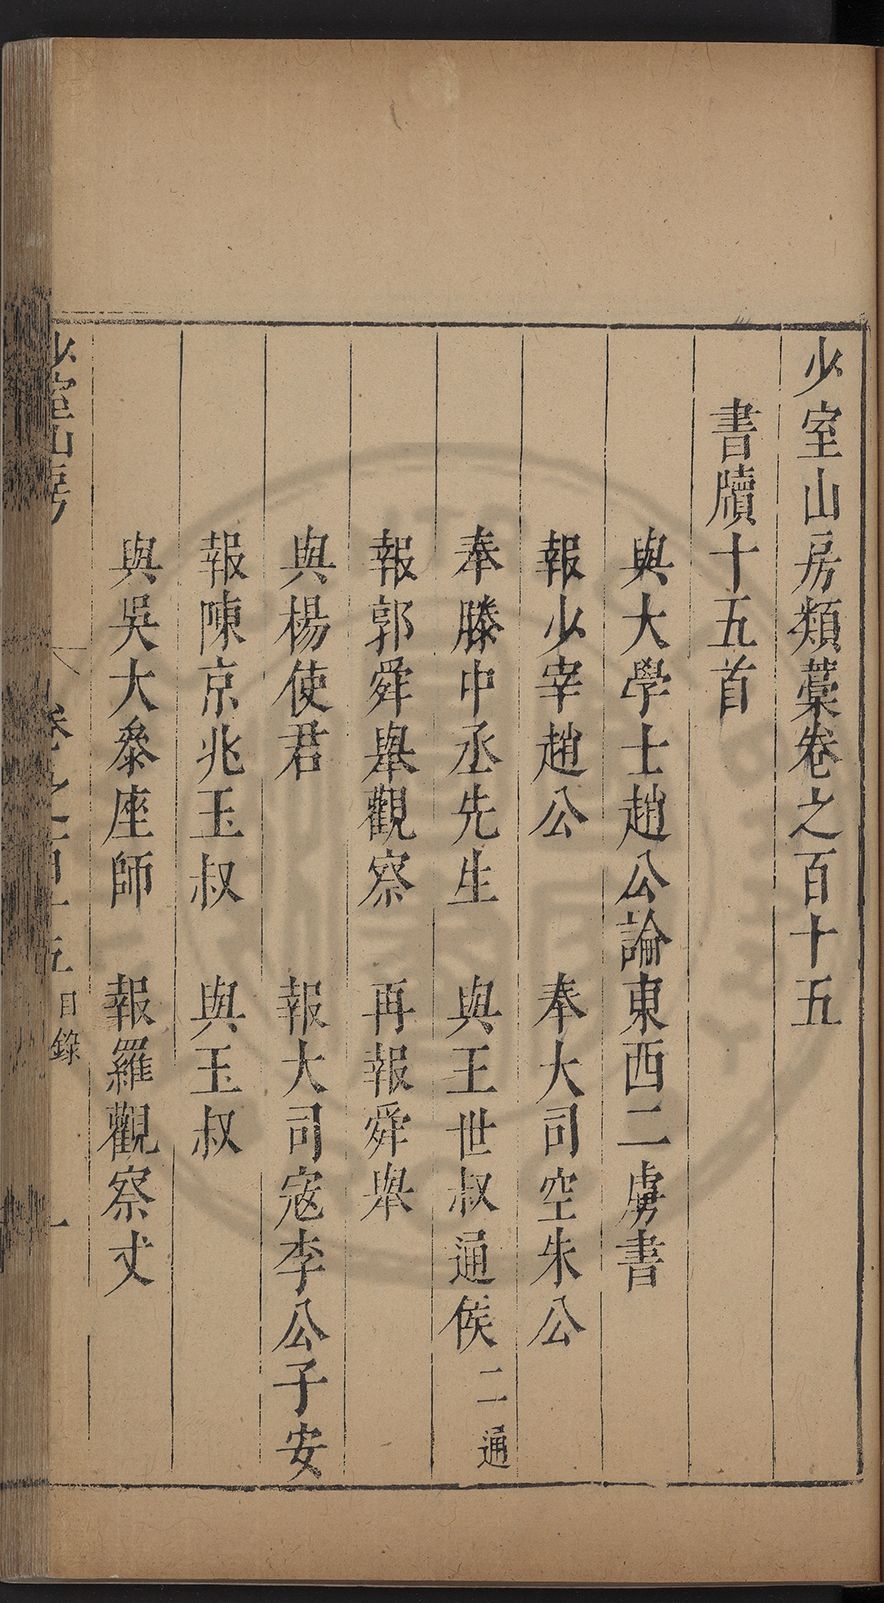 少室山房類藁卷之百十五
書牘十五首
與大學士趙公論東西二虜書
報少宰趙公　奉大司空朱公
奉滕中丞先生　與王世叔通侯二通
報郭舜舉觀察　再報舜舉
與楊使君　報大司寇李公子安
報陳京兆玉叔　與玉叔
與吳大叅座師　報羅觀察丈
少室山房　卷之一百十五目錄　一